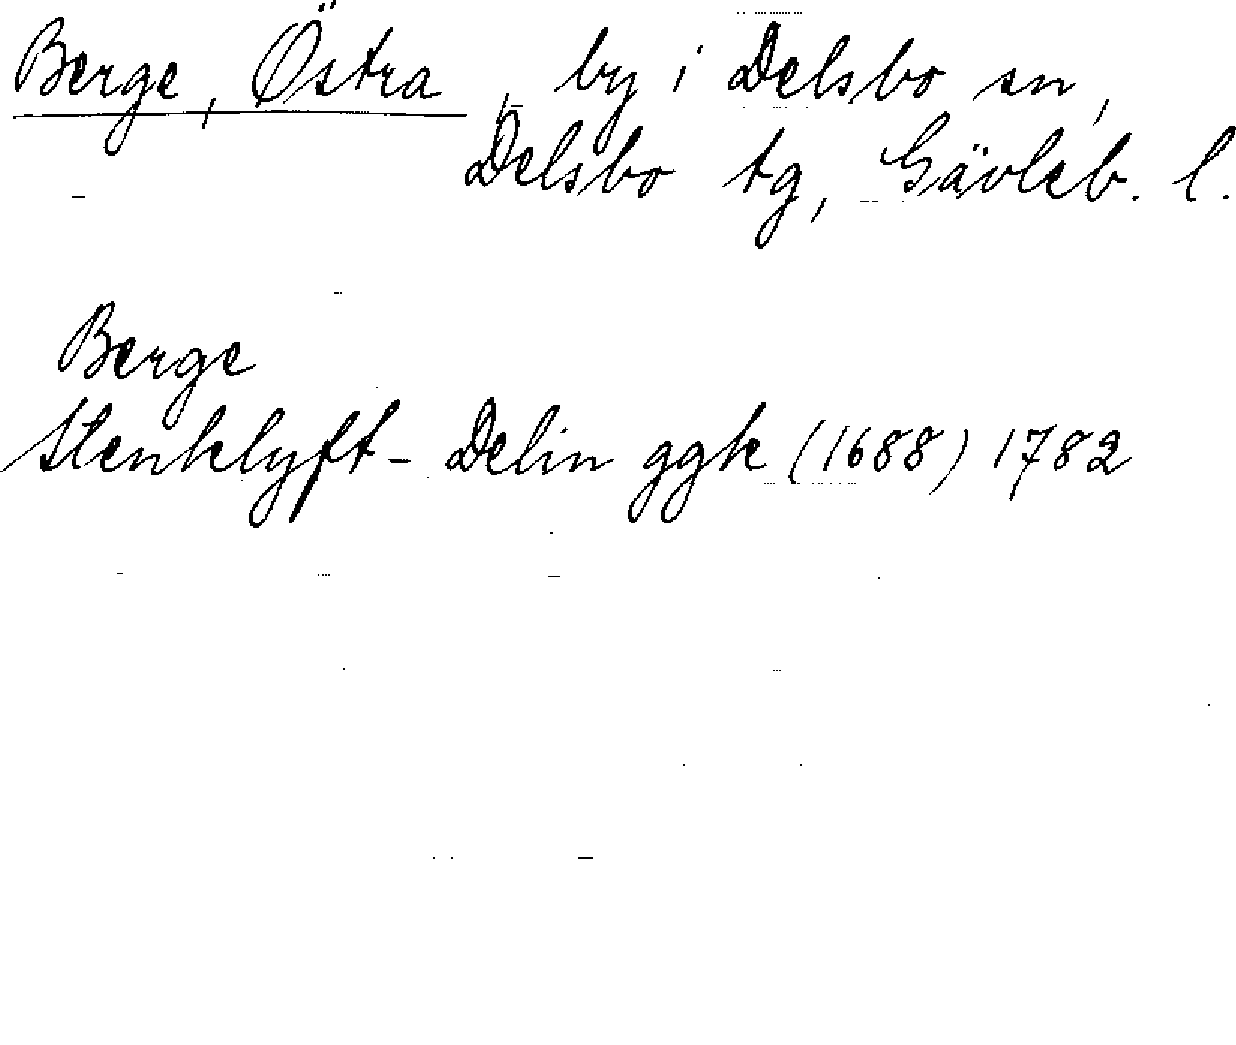 Berge, Östra, by i Delsbo sn,
Delsbo tg, Gävleb. l.
Berge
Stenklyft- Delin ggk (1688) 1782